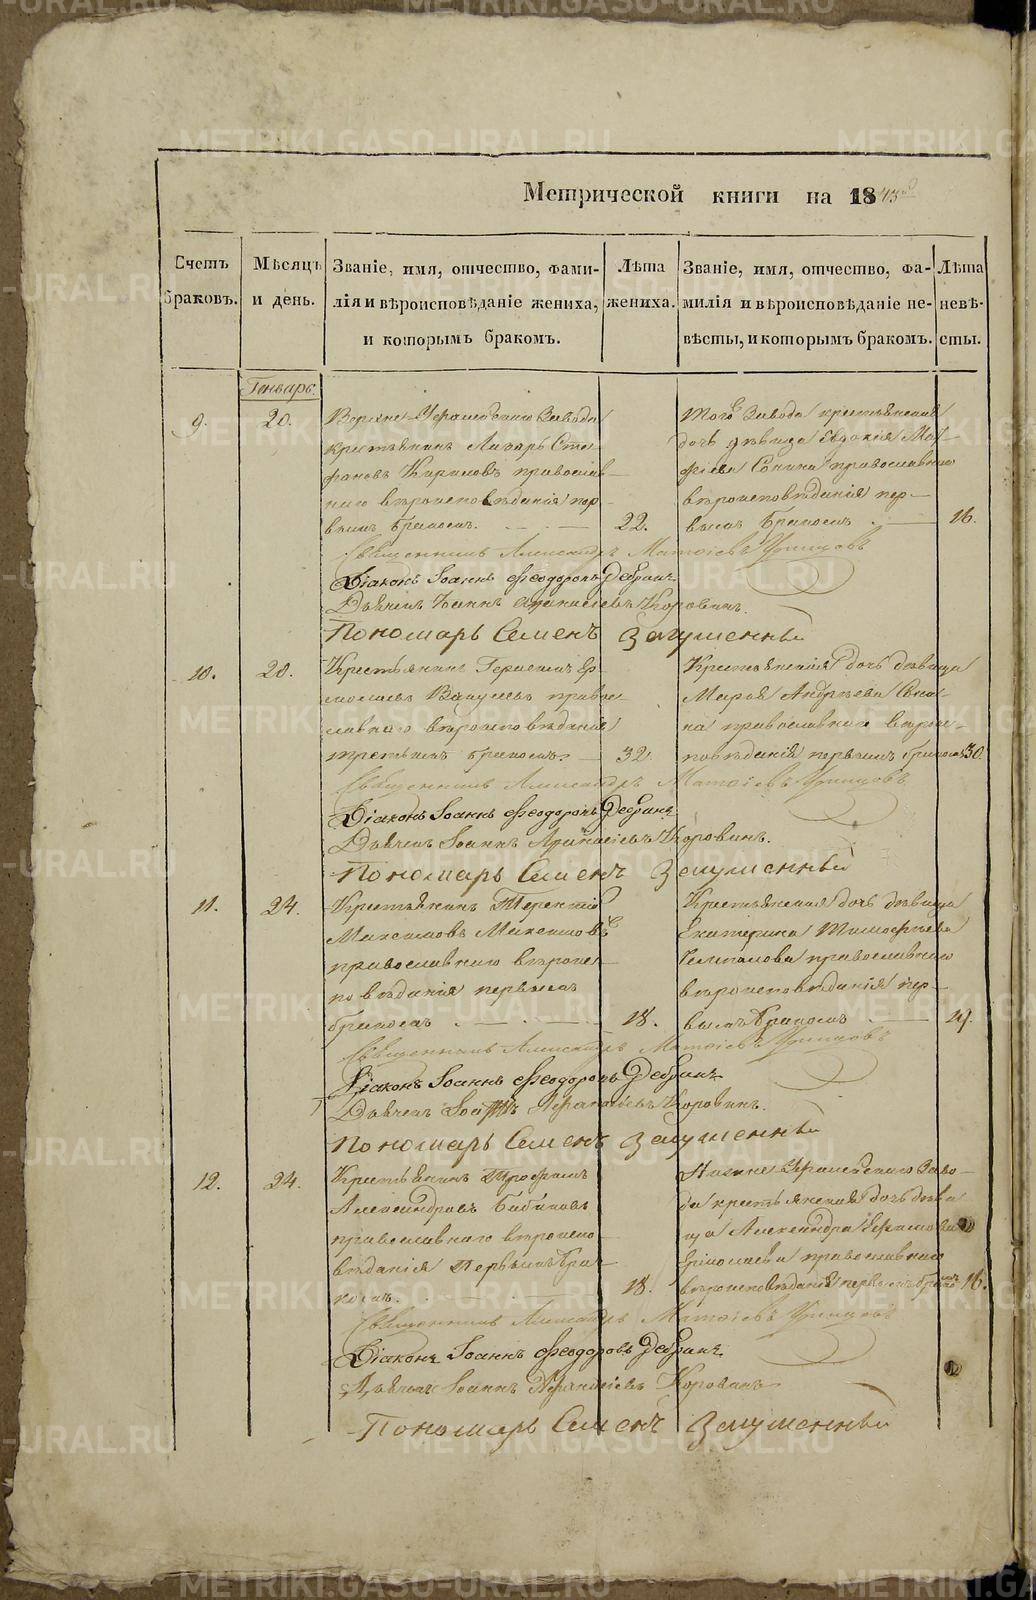 METRIKI.GASO-URAL.RU
Метрической книги на 1843й
Счетъ браковъ.
Мѣсяцъ и день.
Званіе, имя, отчество, фами-
лія и вѣроисповѣданіе жениха,
и которымъ бракомъ.
Лѣта
жениха.
Званіе, имя, отчество, фа-
милія и вѣроисповѣданіе не-
вѣсты, и которымъ бракомъ.
Лѣта
невѣ-
сты.
Генварь.
9.
20.
Завода
крестьянинъ Лазарь Сте-
фановъ православ-
наго вѣроисповѣданія пер-
вымъ бракомъ.
22.
Тогоже Завода крестьянская
дочь дѣвица Евдокія
Сонина православнаго
вѣроисповѣданія пер-
вымъ бракомъ
16.
Священникъ Александръ
Діаконъ Іоаннъ Феодоровъ
Дьячекъ Іоаннъ Афанасіевъ Коровинъ.
Пономарь Семенъ
10.
20.
Крестьянинъ Ер-
молаевъ правос-
лавнаго вѣроисповѣданія
третьимъ бракомъ.
32.
Крестьянская дочь дѣвица
Марья Андреева Сони-
на православнаго вѣрои-
повѣданія первымъ бракомъ
30.
Священникъ Александръ
Діаконъ Іоаннъ Феодоровъ
Дьячекъ Іоаннъ Афанасіевъ Коровинъ.
Пономарь Семенъ
11.
24.
Крестьянинъ Терентій
Максимовъ Максимовъ
православнаго вѣроис-
повѣданія первымъ
бракомъ
18.
Крестьянская дочь дѣвица
Екатерина Тимофѣева
православнаго
вѣроисповѣданія пер-
вымъ бракомъ
19.
Священникъ Александръ
Діаконъ Іоаннъ Феодоровъ
Дьячекъ Іоаннъ Афанасіевъ Коровинъ.
Пономарь Семенъ
12.
24.
Крестьянинъ Трофимъ
Александровъ Бабиновъ
православнаго вѣроиспо-
вѣданія Первымъ бра-
комъ.
18.
Заво-
да крестьянская дочь дѣви-
ца Александра
Ермолаева православнаго
вѣроисповѣданія первымъ бракомъ
16.
Священникъ Александръ
Діаконъ Іоаннъ Феодоровъ
Дьячекъ Іоаннъ Афанасіевъ Коровинъ
Пономарь Семенъ